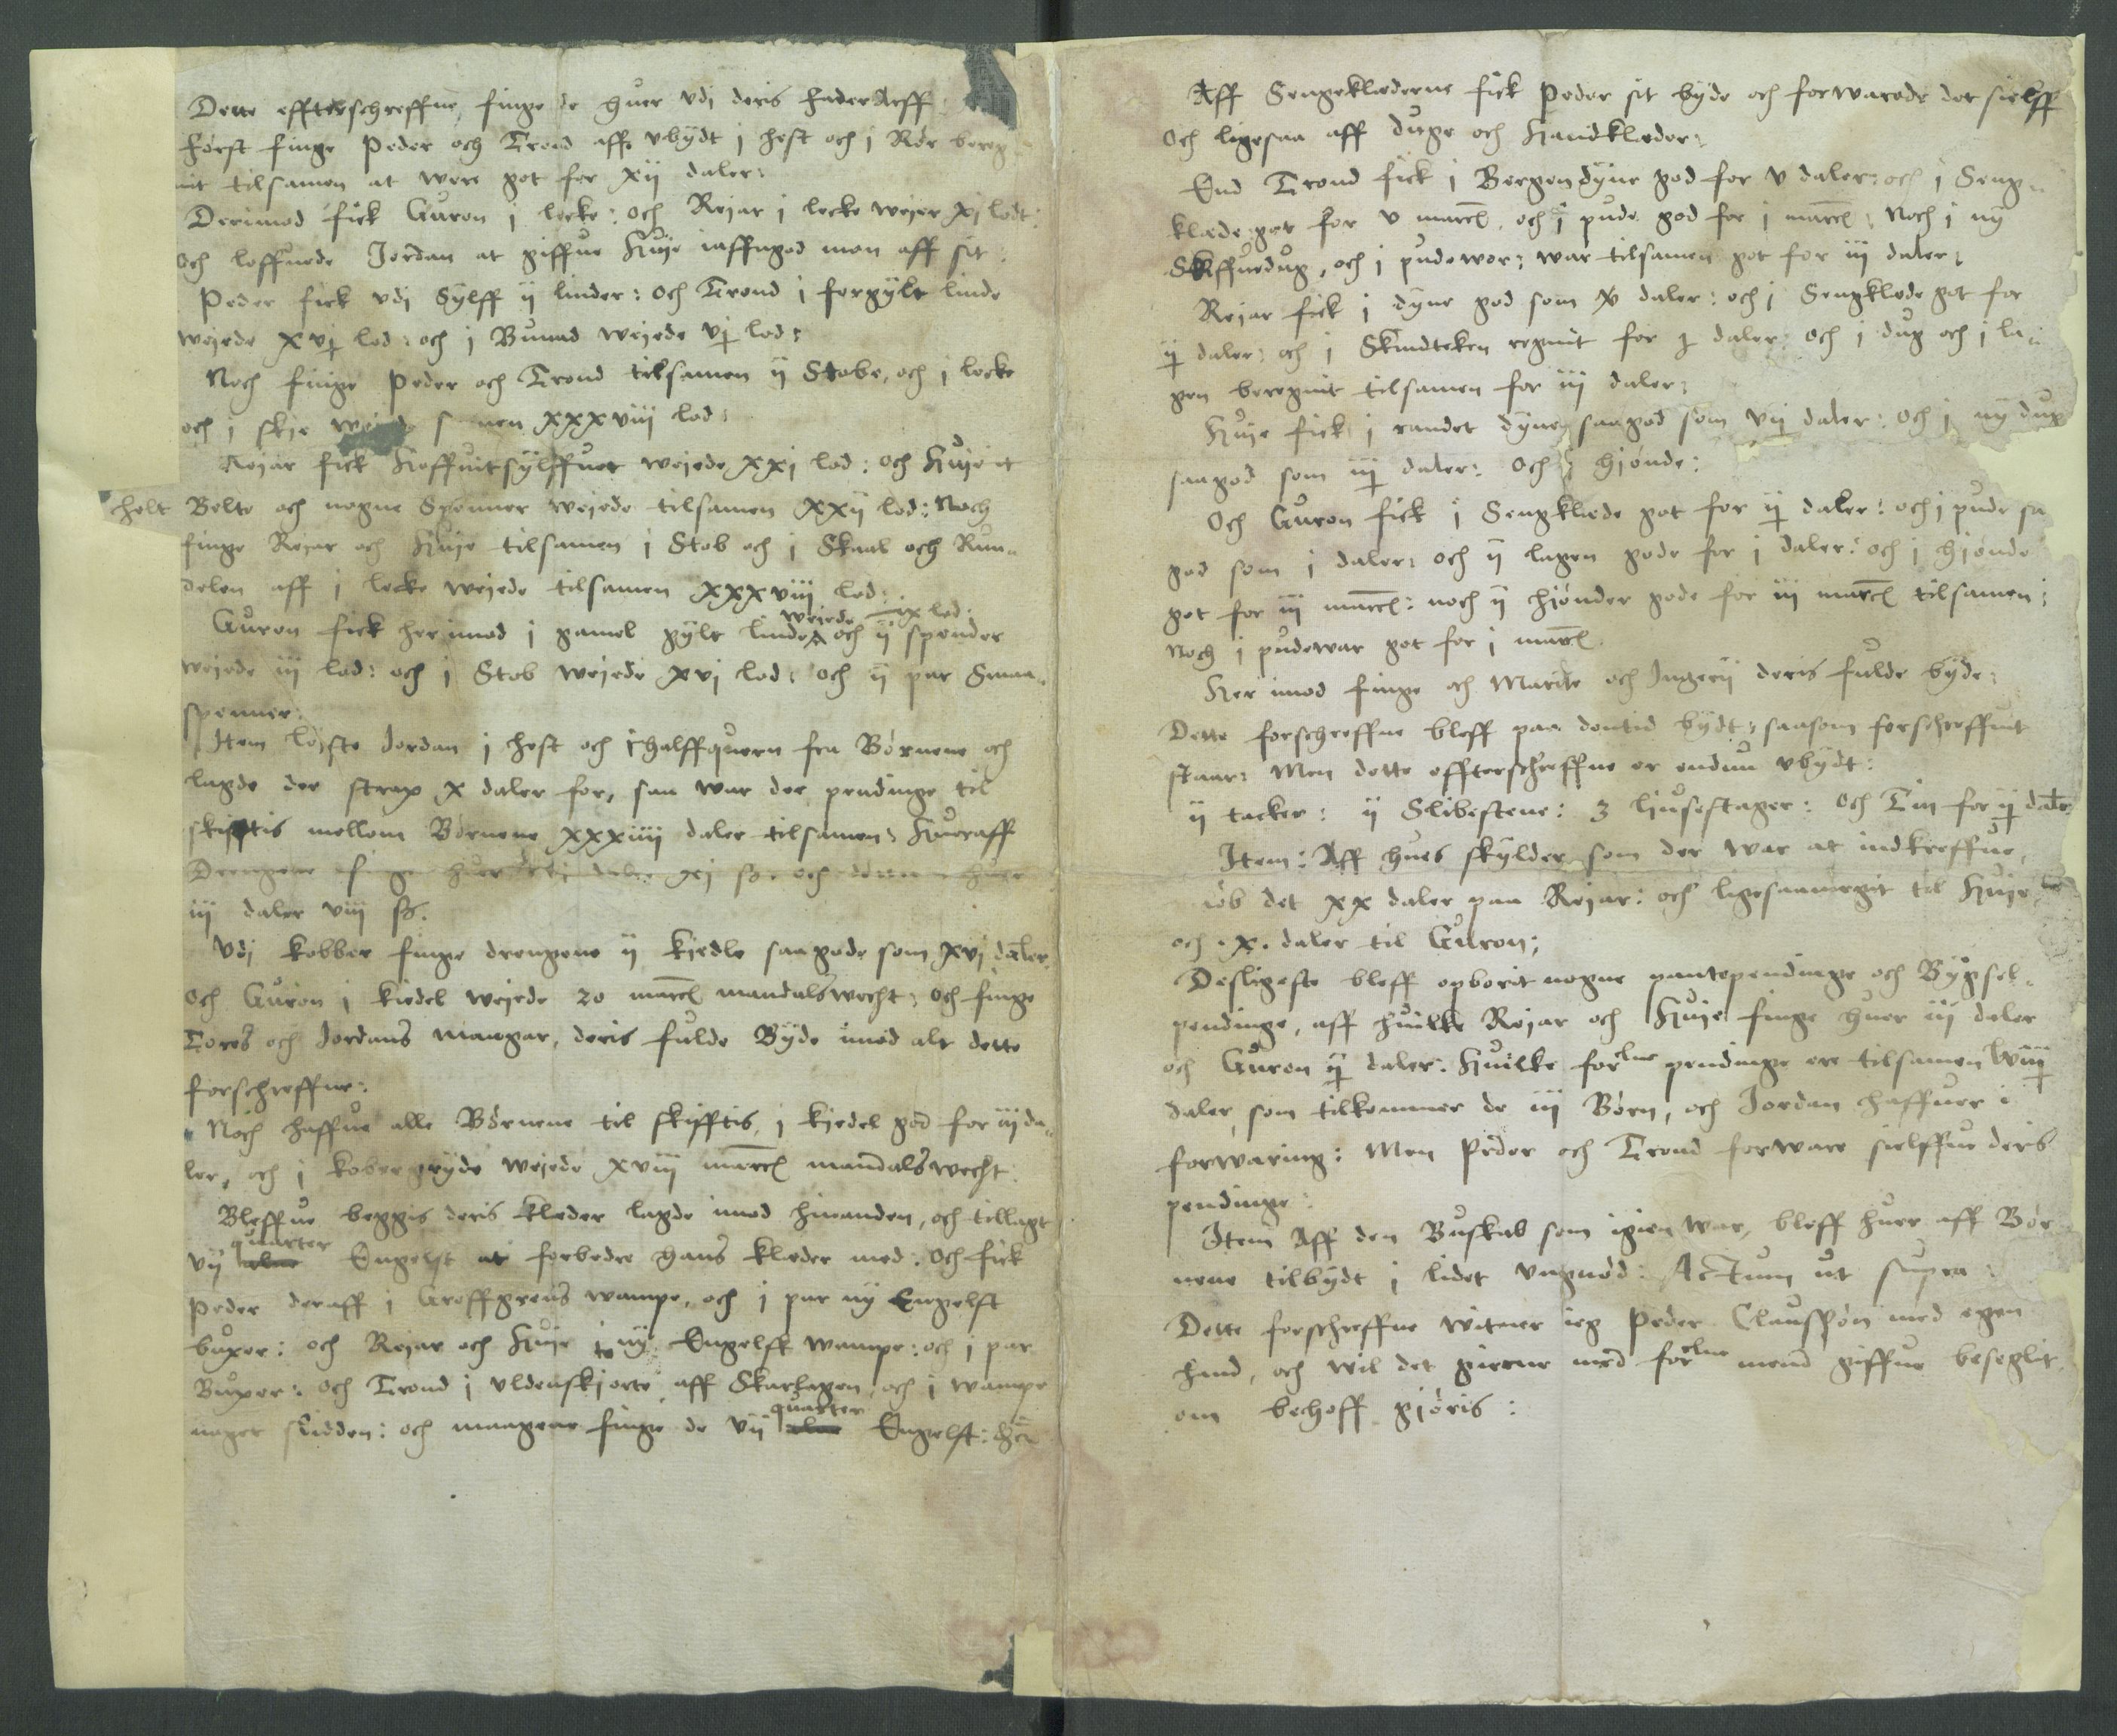 Dette effterschreffne, finge de huer vdj deris FaderArff
Først finge Peder och Trond aff vbydt j hest och j Rør bereg
nit tilsamen at were got for xij daler:
Derimod fick Guron j lecke: och Reiar j lecke weier xj lodt:
och loffuede Jordan at giffue Huje iaffngod mon aff sit:
Peder fick vdj Sylff ij linder: Och Trond j forgylt linde
weiede xvj lod: och j Bunad weiede vj lod:
Noch finge Peder och Trond tilsamen ij Stobe, och j lecke
och j skje xxxviii lod:
Reiar fick Hoffuitsylffuet weiede xxj lod: och Huje et
helt Belte och nogne Spenner weiede tilsamen xxij lod: Noch
finge Reiar och Huje tilsamen j Stob och j Skaal och Run
delen aff j lecke weiede tilsamen xxxviii lod:
weiede ix lod:
Guron fick her imod j gamel gylt linde och ij spender
weiede iij lod: och j Stob weiede xvj lod: och ij par Smaa
spenner:
Item løste Jordan j hest och j halffquern fra Børnene och
lagde der strax x daler for, saa war der pendinge til
skifftis mellom Børnene xxxiiij daler tilsamen: Hueraff
Drengene finge huer daler xj ß. och huer
iij daler viii ß.
Vdj kobber finge drengene ij kiedle saagode som xvj daler
och Guron j kiedel weiede 20 marck mandalswecht: och finge
Tores och Jordans mangar, deris fulde Byde imod alt dette
forschreffne:
Noch haffue alle Børnene til skifftis, j kiedel god for iij da
ler, och j kobergryde weiede xviii marck mandalswecht:
Bleffue beggis deris klæder lagde imod hinanden, och tillagt
quarter
vij Engelst at forbedre hans klæder med: Och fick
Peder deraff j Groffgrøns wampe, och j par ny Engelst
buxer: och Reiar och Huje to ny Engelst wampe: och j par
Buxer: och Trond j vldenskiorte aff Skarlagen, och j wampe
quarter
noget slidden: och maagene finge de vij Engelst:
Aff Sengeklæderne fick Peder sit byde och forwarede det sielff
Och ligesaa aff duge och Handklæder:
End Trond fick j Bergen dyne god for v daler: och j Senge
klæde got for v marck, och j pude god for j marck: Noch j ny
Skiffuedug, och j pudewor: war tilsamen got for iij daler:
Reiar fick j dyne god som v daler: och j Sengklæde got for
ij daler: och j Skindteken regnit for j daler: och j dug och j la
gen beregnit tilsamen for iij daler:
Huje fick j randet dyne saagod som vij daler: Och j ny dug
saagod som iij daler: Och j hiønde:
Och Guron fick j Sengklæde got for ij daler: och j pude saa
god som j daler: och ij lagen gode for j daler: och j hiønde
got for iij marck: noch ij hiønder gode for iij marck tilsamen:
Noch j pudewar got for j marck.
Her imod finge och Marite och Ingerij deris fulde byde:
Dette forschreffne bleff paa dentid bydt: saasom forschreffuit
staar: Men dette effterschreffne er endnu vbydt:
ij tacker: ij Slibestene: 3 liusestager: och Tin for ij daler:
Item: Aff hues skylder som der war at indkreffue,
løb det xx daler paa Reiar: och ligesaamegit til Huje
och .x. daler til Guron:
Desligeste bleff opborit nogne pantependinge och Bygsel
pendinge, aff huilke Reiar och Huje finge huer iij daler
och Guron ij daler: Huilke forne pendinge ere tilsamen lviij
daler, som tilkommer de iij Børn, och Jordan haffuer i
forwaring: Men Peder och Trond forware sielffue deris
pendinge:
Item Aff den Buskab som igien war, bleff huer aff Bør
nene tilbydt j lidet vngnød: Actum ut supra:
Dette forschreffne witner ieg Peder Claussøn med egen
hand, och wil det gierne med forne mend giffue beseglit,
om behoff giøris: